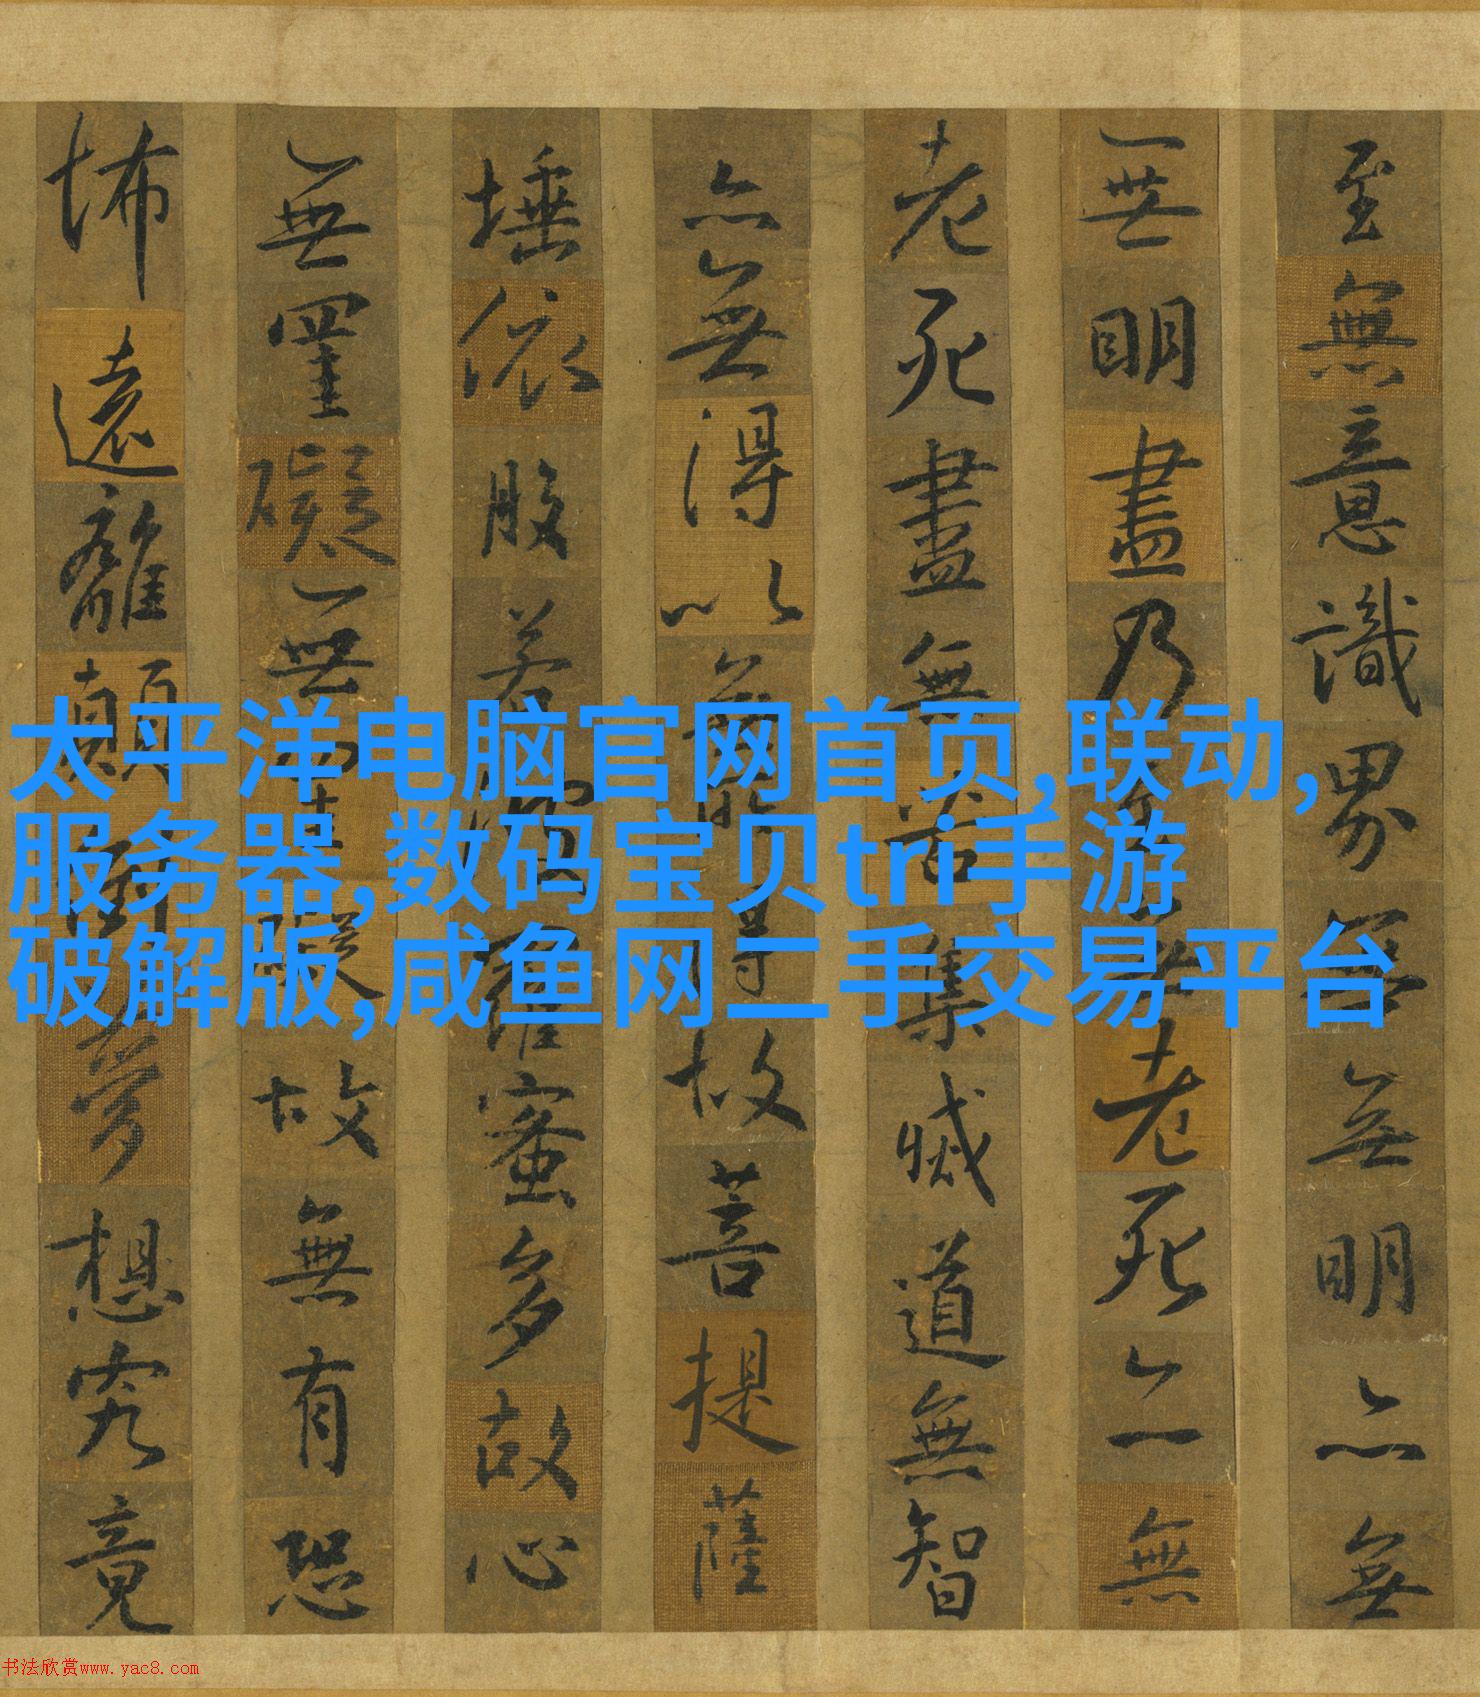 至無意識界無無明亦無
無明盡乃至無老死亦無
老死盡無苦集滅道無智
亦無得以無所得故菩提薩
埵依般若波羅蜜多故心
無罣礙無罣礙故無有恐
怖遠離顛倒夢想究竟
太平洋电脑官网首页,联动,
服务器,数码宝贝tri手游
破解版,咸鱼网二手交易平台
书法欣赏www.yac8.com